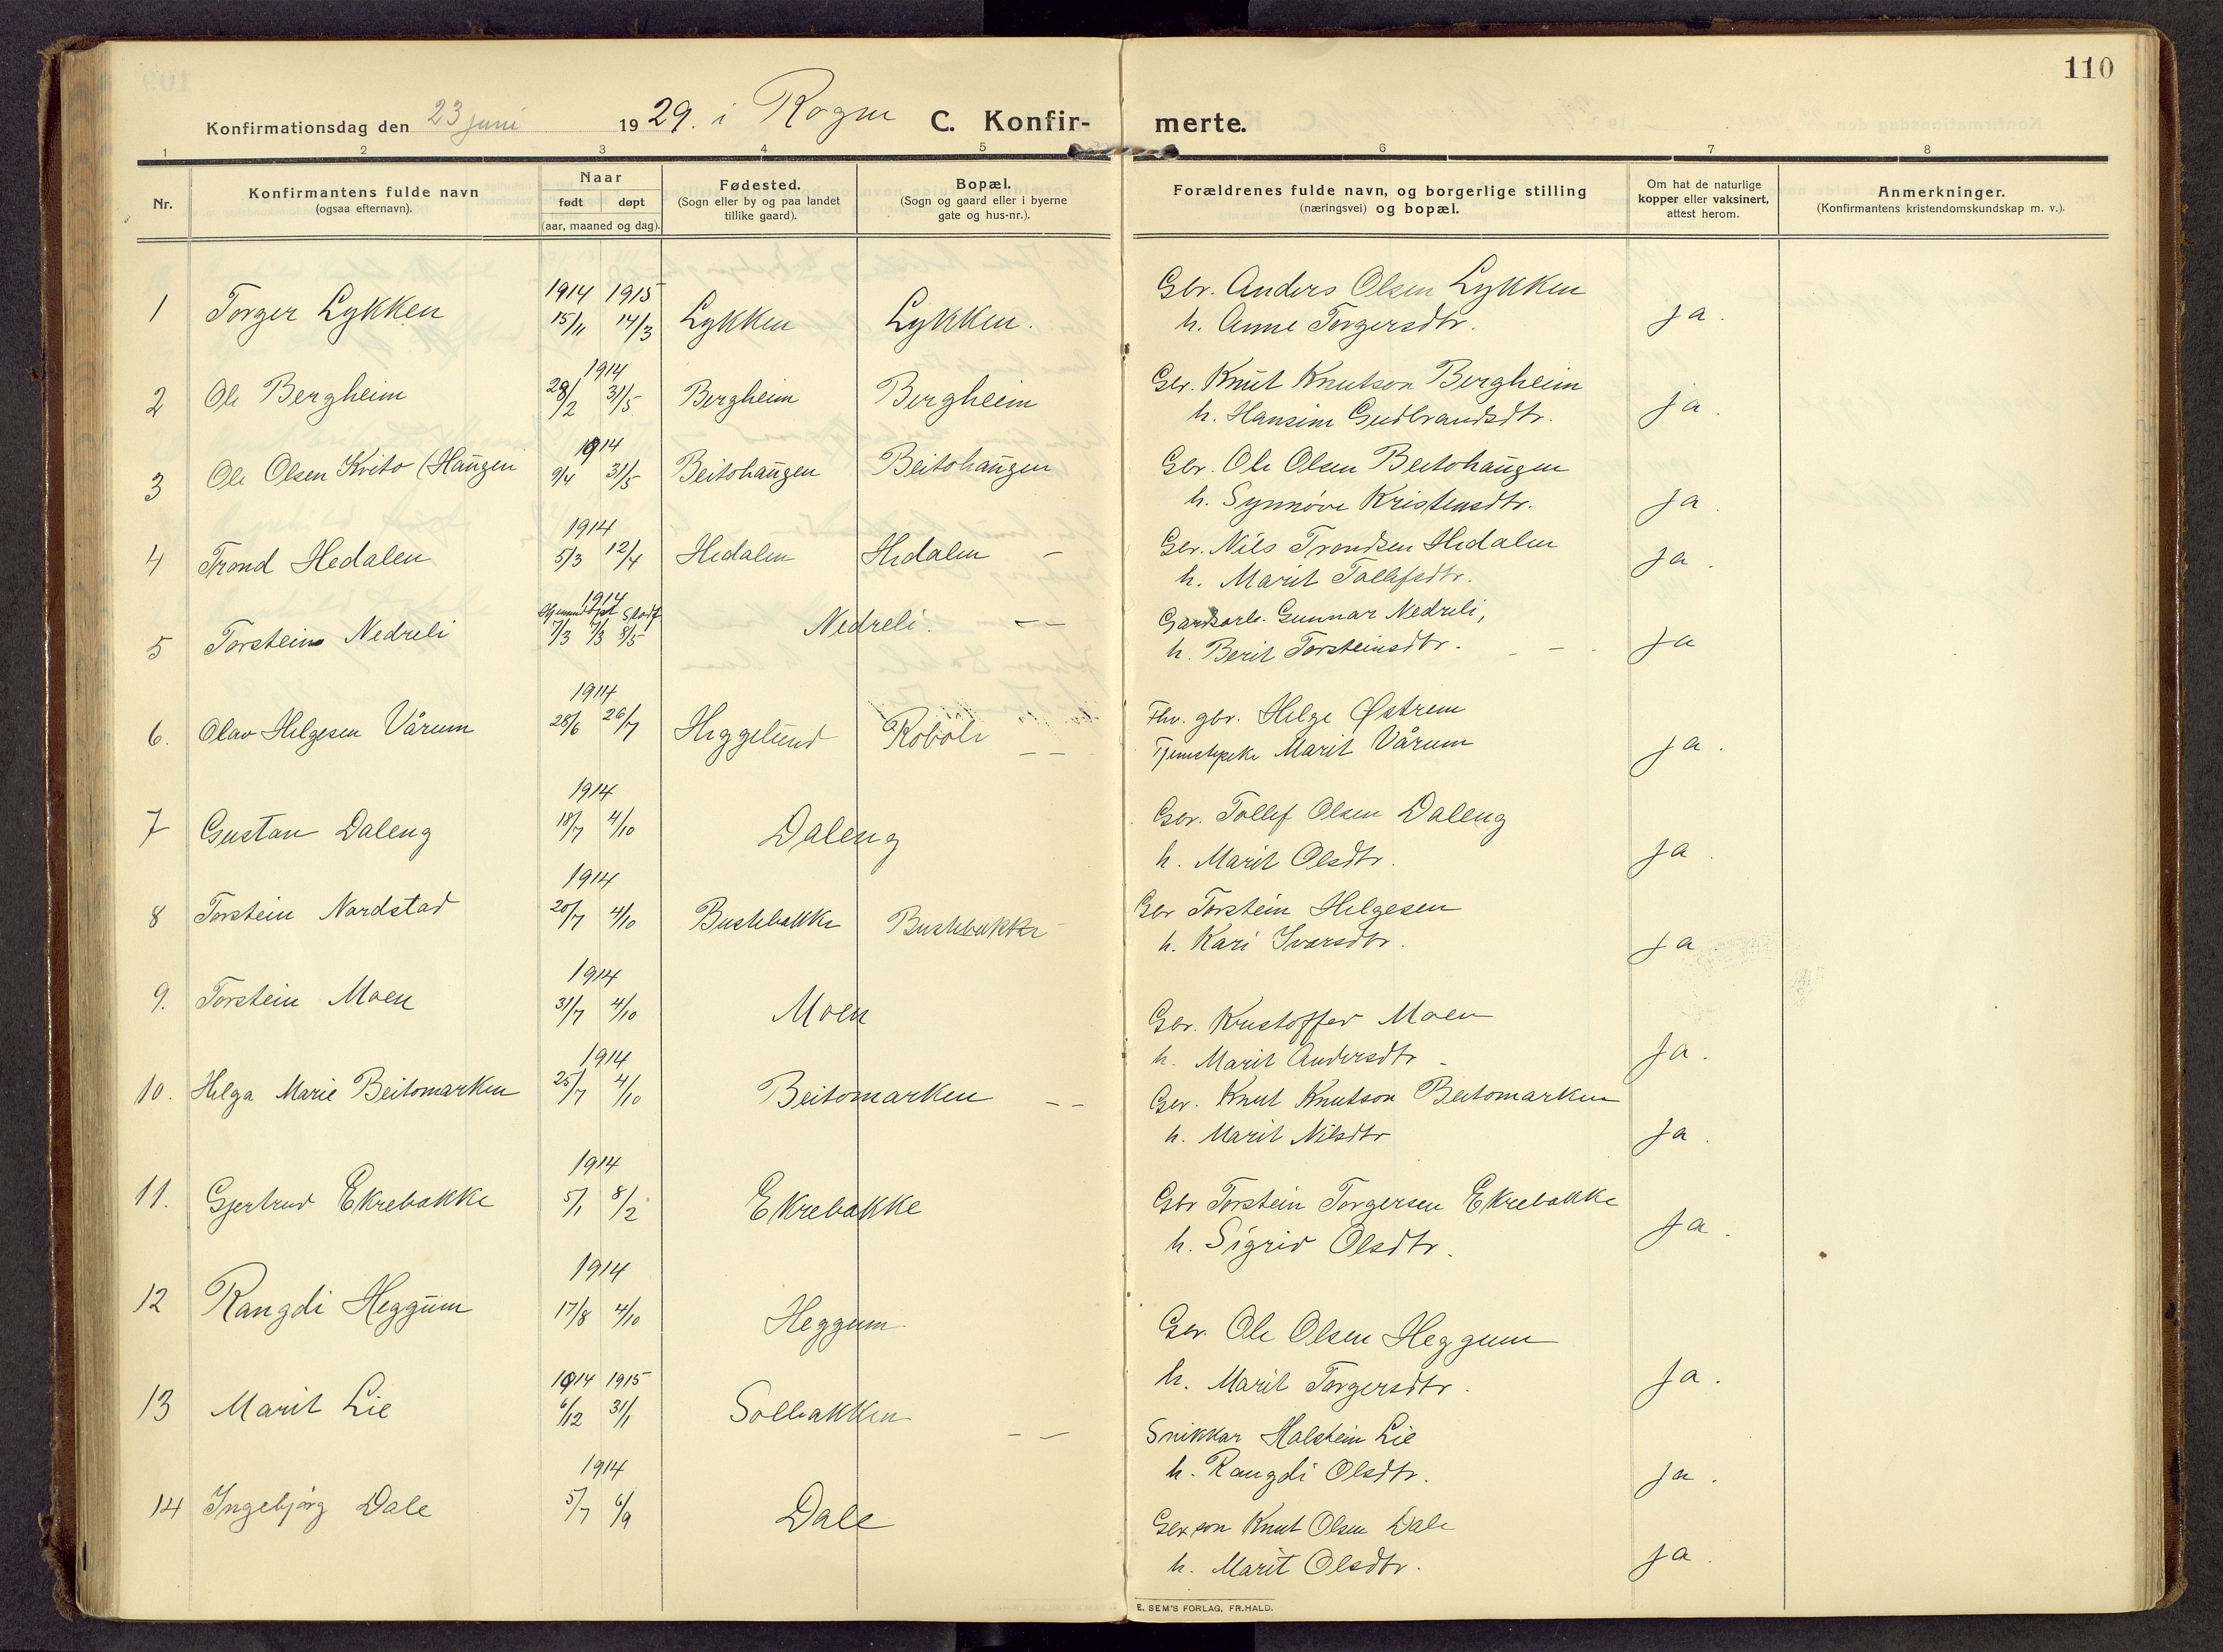 110
Konfirmationsdag den 23 juni 1929. i Rogne C. Konfir- merte.
1 2 3 4 5 6 7 8
Nr.
Konfirmantens fulde navn
(ogsaa efternavn).
Naar
født døpt
(aar, maaned og dag).
Fødested.
(Sogn eller by og paa landet
tillike gaard).
Bopæl.
(Sogn og gaard eller i byerne
gate og hus-nr.).
Forældrenes fulde navn, og borgerlige stilling
(næringsvei) og bopæl.
Om hat de naturlige
kopper eller vaksinert,
attest herom.
Anmerkninger.
(Konfirmantens kristendomskundskap m. v.).
1914 1915 Gbr. Anders Olsen Lykken
1 Torger Lykken 15/11 14/3 Lykken Lykken. h. Anne Torgersdtr. ja.
1914 Gbr. Knut Knutson Bergheim
2 Ole Bergheim 28/2 31/5 Bergheim Bergheim h. Hansine Gudbrandsdtr. ja.
1914 Gbr. Ole Olsen Beitohaugen
3 Ole Olsen Kvito (Haugen 9/4 31/5 Beitohaugen Beitohaugen h. Synnøve Kristensdtr. ja.
1914 Gbr. Nils Trondsen Hedalen
4 Trond Hedalen 5/3 12/4 Hedalen Hedalen – h. Marit Tollefsdtr. ja.
1914 Gardsarb. Gunnar Nedreli,
Hjemmedøpt Stadf
5 Torstein Nedreli 7/3 7/3 8/5 Nedreli. – – h. Berit Torsteinsdtr. ja
1914 Fhv. gbr. Helge Østrem
6. Olav Helgesen Vårum 28/6 26/7 Heggelund Robøle – – Marit Vårum ja.
1914 Gbr. Tollef Olsen Daleng
7 Gustav Daleng 18/7 4/10 Daleng h. Marit Olsdtr. ja.
1914 Gbr Torstein Helgesen
8 Torstein Nordstad 20/7 4/10 Buskebakke Buskebakke h. Kari Ivarsdtr. ja
1914
9. Torstein Moen 31/7 4/10 Moen Gbr. Kristoffer Moen
h. Marit Andersdtr ja.
1914
10. Helga Marie Beitomarken 25/7 4/10 Beitomarken – – Gbr. Knut Knutson Beitomarken
h. Marit Nilsdtr ja.
1914
11. Gjertrud Ekrebakke 5/1 8/2 Ekrebakke Gbr Torstein Torgersen Ekrebakke
h. Sigrid Olsdtr. ja.
1914
12 Rangdi Heggum 17/8 4/10 Heggum Gbr. Ole Olsen Heggum
h. Marit Torgersdtr. ja.
1914 1915
13 Marit Lie 6/12 31/1 Solbakken – – Snikkar Halstein Lie
h. Rangdi Olsdtr. ja.
1914
14 Ingebjørg Dale 5/7 6/9 Dale Gbr.son Knut Olsen Dale
h. Marit Olsdtr. ja.
E. SEM'S FORLAG, FR.HALD.